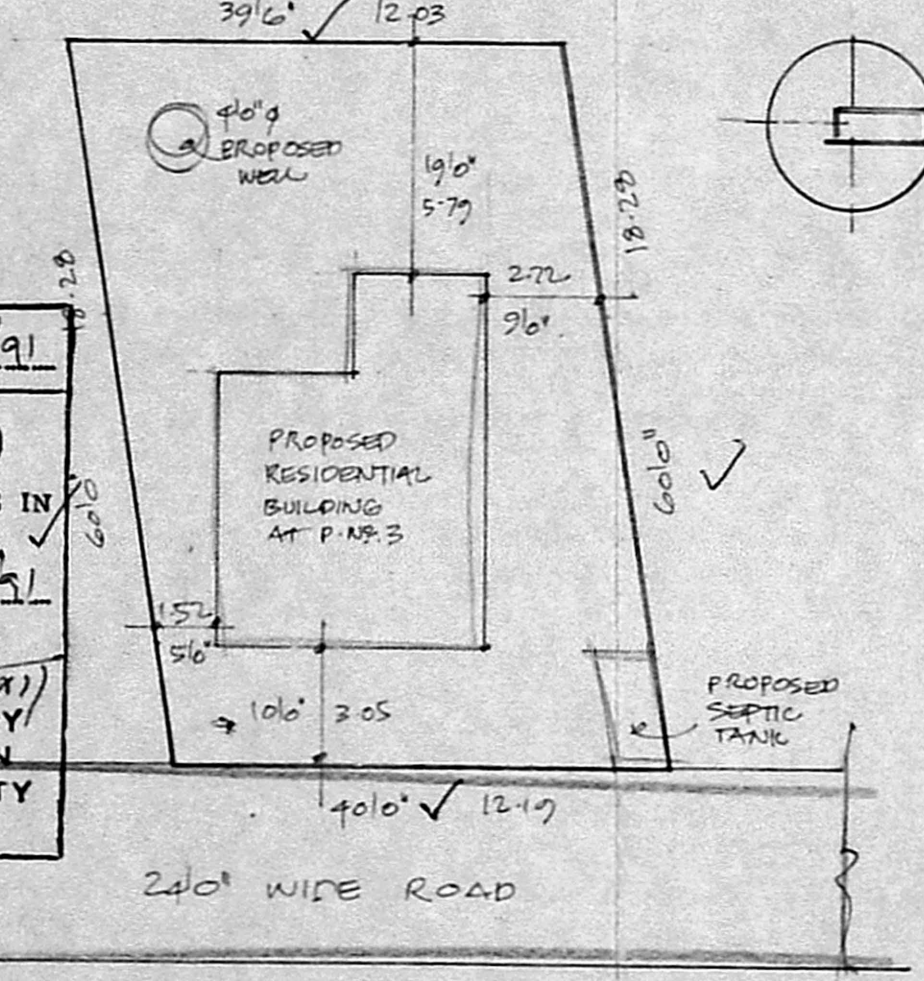 39'6" 12.03
4'0"φ
PROPOSED
WELL
19'0"
5.79
18.28
2.72
9'0"
18.28
60'0"
60'0
PROPOSED
RESIDENTIAL
BUILDING
AT P.No.3
1.52
5'0"
10'0" 3.05
PROPOSED
SEPTIC
TANK
40'0" 12.19
24'0" WIDE ROAD
91
IN
91
Y
N
TY